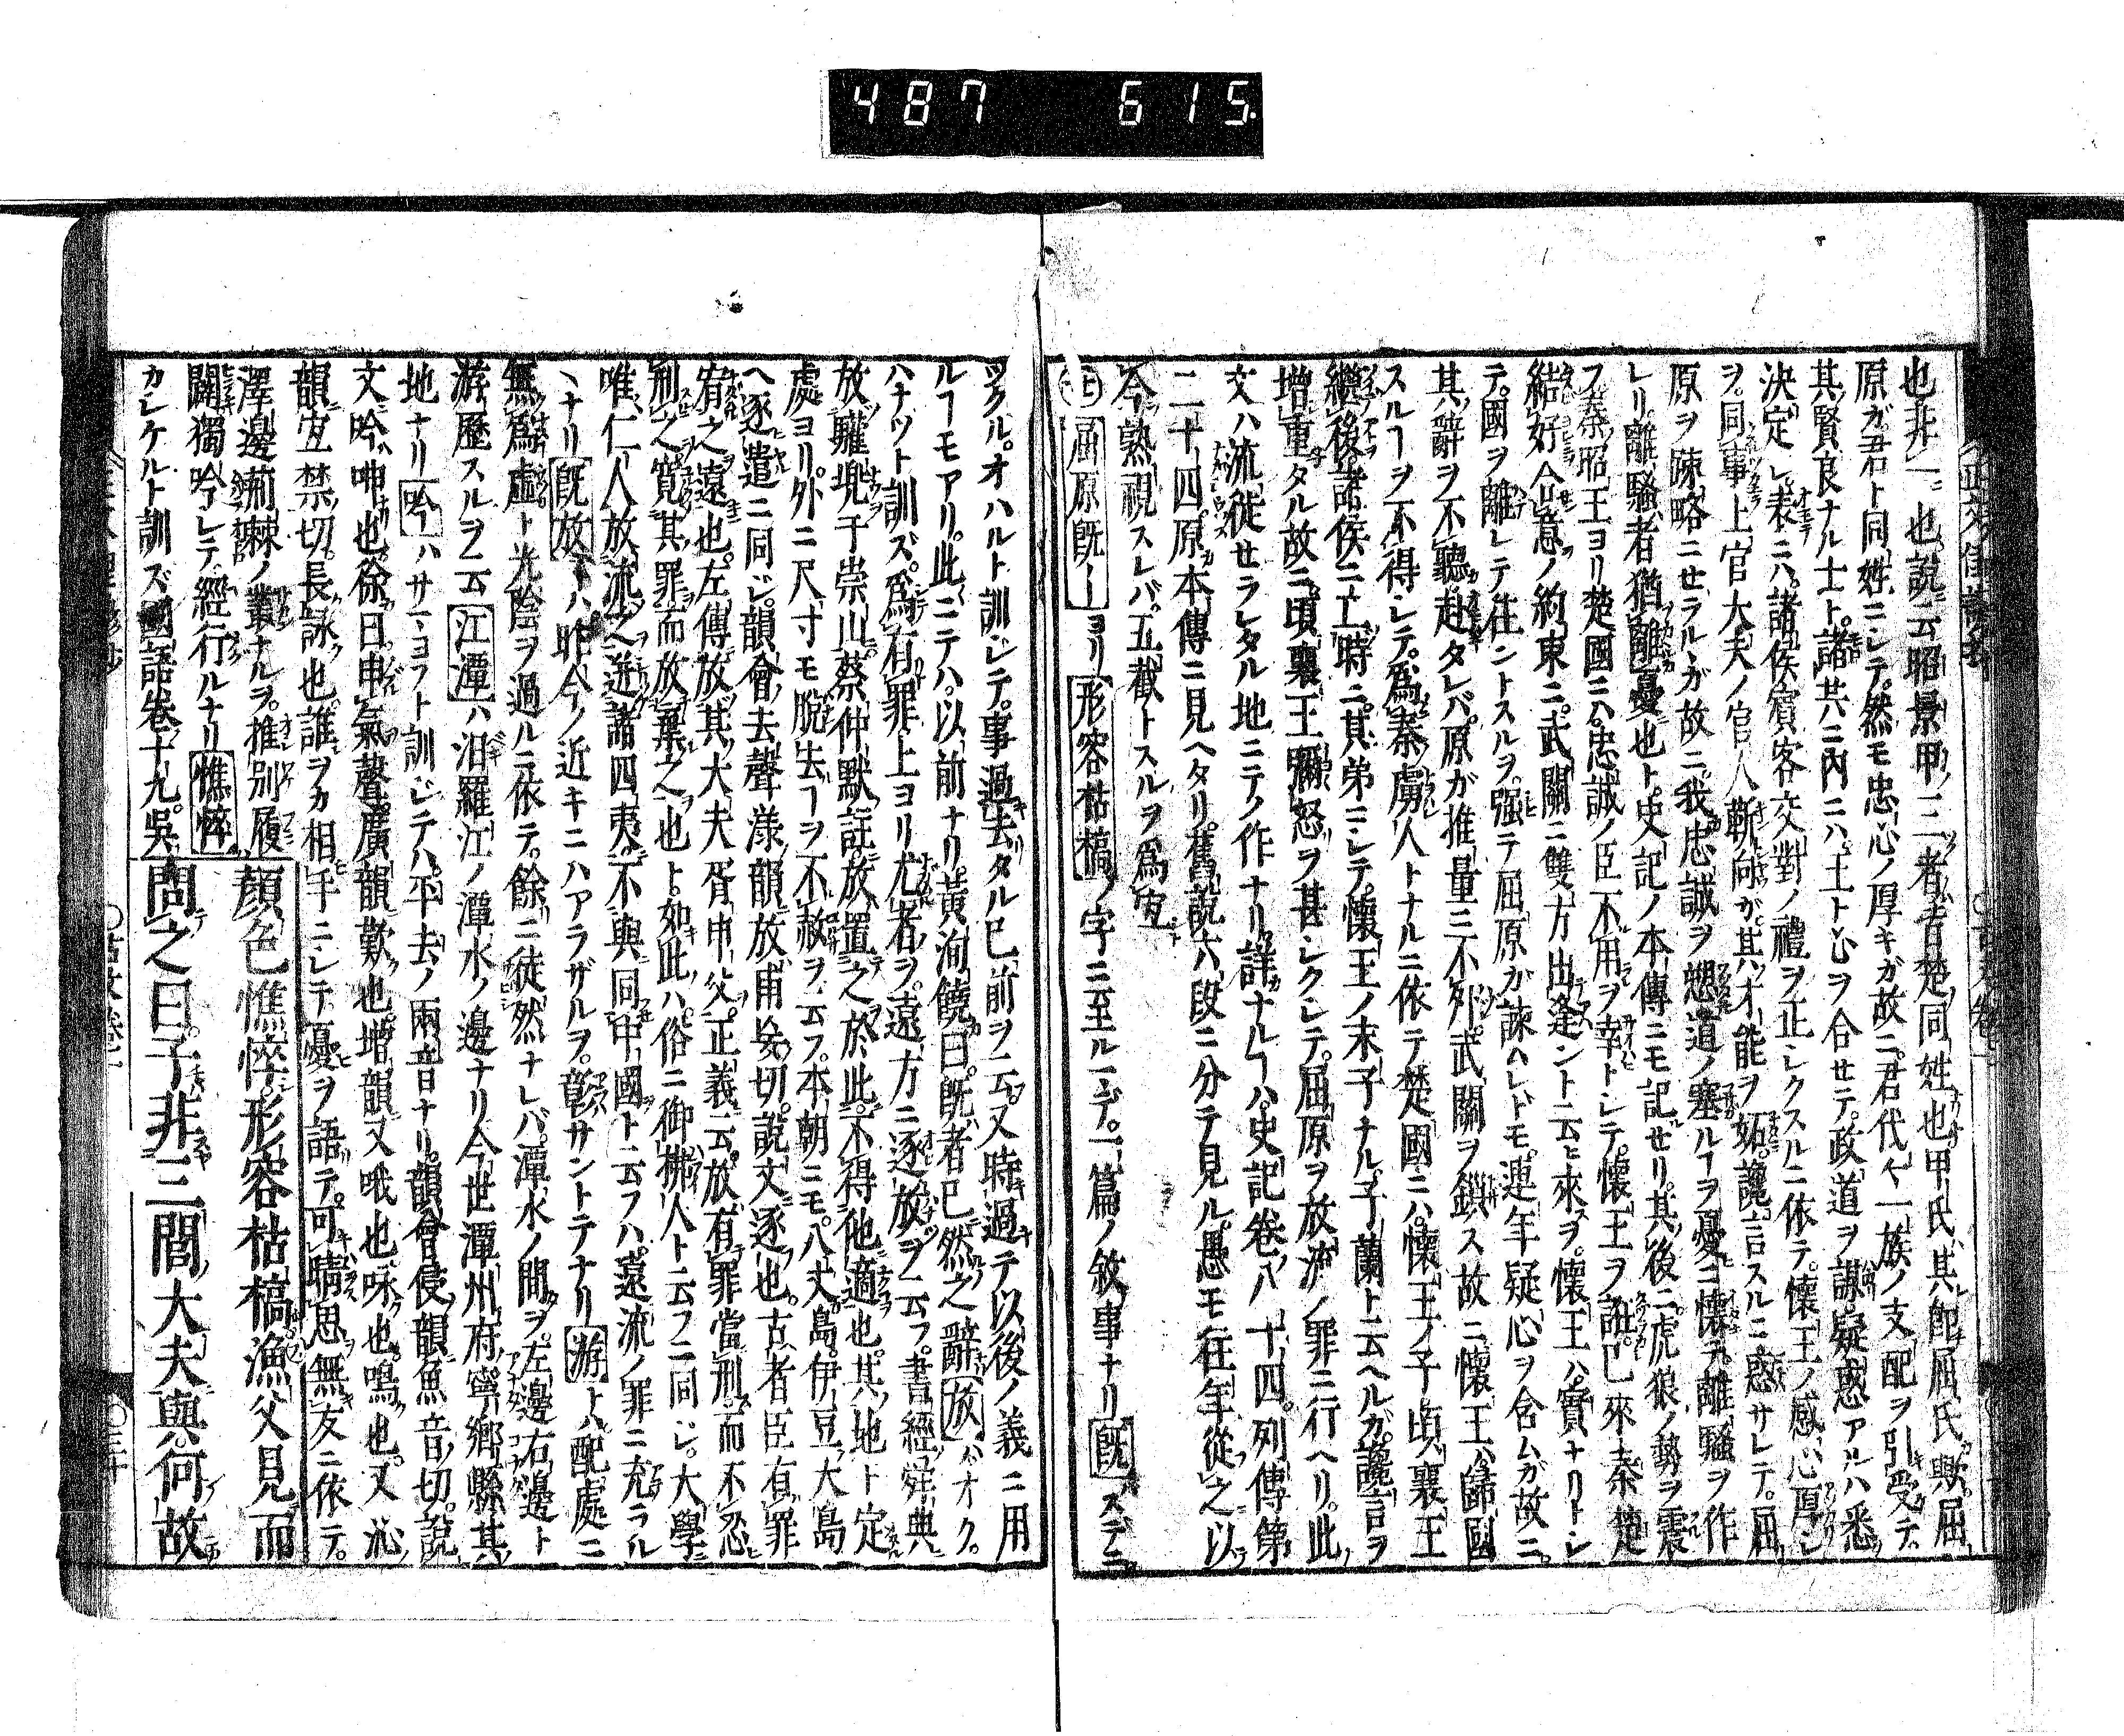 487 615
也非一也說云昭景甲三者皆楚同姓也甲氏其即屈氏歟屈
原ガ君ト同姓ニシテ然モ忠心ノ厚キガ故ニ君代々一族ノ支配ヲ引受テ
其賢良ナル士ト諸共ニ內ニハ王ト心ヲ合セテ政道ヲ謀疑惑アルハ悉
決定シ表ニハ諸侯賓客交對ノ禮ヲ正シクスルニ依テ懷王ノ感心厚シ
ヲ同事上官大夫ノ官人靳尙ガ其才能ヲ妬讒言スルニ惑サレテ屈
原ヲ疎略ニセラルヽガ故ニ我忠誠ヲ愬道ノ塞ルヿヲ憂ニ懷テ離騷ヲ作
レリ離騷者猶離憂也ト史記ノ本傳ニモ記セリ其後ニ虎狼ノ勢ヲ震
フ秦昭王ヨリ楚國ニハ忠誠ノ臣不用ヲ幸トシテ懷王ヲ誑已來秦楚
結好合意ノ約束ニ武關ニ雙方出逢ント云ヒ來ヲ懷王ハ實ナリトシ
テ國ヲ離レテ往ントスルヲ强テ屈原ガ諫ハレトモ連年疑心ヲ含ムガ故ニ
其辭ヲ不聽赴タレバ原ガ推量ニ不外武關ヲ鎖ス故ニ懷王ハ歸國
スルヿヲ不得シテ爲秦虜人トナルニ依テ楚國ニハ懷王ノ子頃襄王
繼後諸侯ニ立時ニ其弟ニシテ懷王ノ末子ナル子蘭ト云ヘルガ讒言ヲ
增重タル故ニ頃襄王彌怒ヲ甚シクシテ屈原ヲ放流ノ罪ニ行ヘリ此
文ハ流徒セラレタル地ニテノ作ナリ詳ナルヿハ史記卷八十四列傳第
二十四原本傳ニ見ヘタリ舊說六段ニ分テ見ル愚モ往年從之以
今熟視スレバ五截トスルヲ爲宜
屈原既ーヨリ形容枯槁ノ字ニ至ルマデ一篇ノ敘事ナリ既スデニ
ツクルオハルト訓ジテ事過去タル已前ヲ云又時過テ以後ノ義ニ用
ルヿモアリ此ニテハ以前ナリ黃洵饒曰既者已然之辭放ハオク
ハナツト訓ズ爲有罪上ヨリ尤者ヲ遠方ニ逐放ヲ云フ書經舜典
放驩兜于崇山蔡仲默註放置之於此不得他適也其地ト定
處ヨリ外ニ尺寸モ脫去ヿヲ不赦ヲ云フ本朝ニモ八丈島伊豆大島
ヘ逐遣ニ同ジ韻會去聲漾韻放甫妄切說文逐也古者臣有罪
宥之遠也左傳放其大夫胥申父正義云放有罪當刑而不忍
刑之寬其罪而放棄之也ト如此ハ俗ニ御拂人ト云フニ同シ大學
唯仁人放流之迸諸四夷不與同中國ト云フハ遠流ノ罪ニ充ラル
ヽナリ既放トハ昨今ノ近キニハアラザルヲ彰サントテナリ游トハ配處ニ
無爲虛ト光陰ヲ過ルニ依テ餘ニ徒然ナレバ潭水ノ間ヲ左邊右邊ト
游歷スルヲ云江潭ハ汨羅江ノ潭水ノ邊ナリ今世潭州府寧鄕縣其
地ナリ吟ハサマヨフト訓ジテハ平去ノ兩音ナリ韻會侵韻魚音切說
文吟呻也徐曰申氣聲廣韻歎也增韻又哦也咏也鳴也又沁
韻宜禁切長詠也誰ヲカ相手ニシテ憂ヲ語テ可晴思無友ニ依テ
澤邊荊棘ノ叢ナルヲ推別履
闢獨吟シテ經行ルナリ憔悴
カレケルト訓ズ國語卷十九吳
顏色憔悴形容枯槁漁父見而
問之曰子非三閭大夫與何故